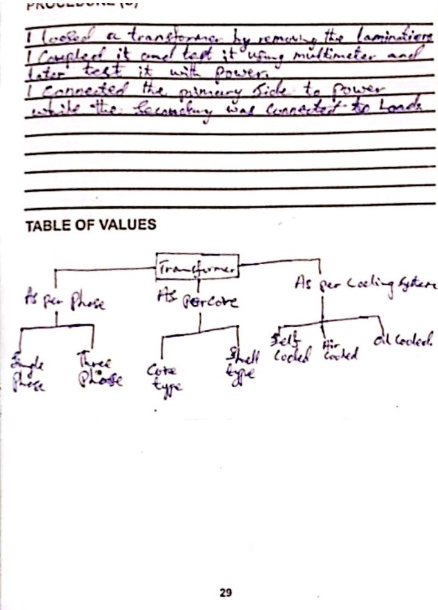 PROCEDURE (S)
I loosed a transformer by removing the laminations
I Coupled it and test it using multimeter and
later test it with power.
I Connected the primary side to power
while the Secondary was Connected to Loads
TABLE OF VALUES
Transformer
As per Phase
As per core
As per Cooling System
Single Phase
Three Phase
Core type
Shell type
Self Cooled
Air Cooled
Oil Cooled
29